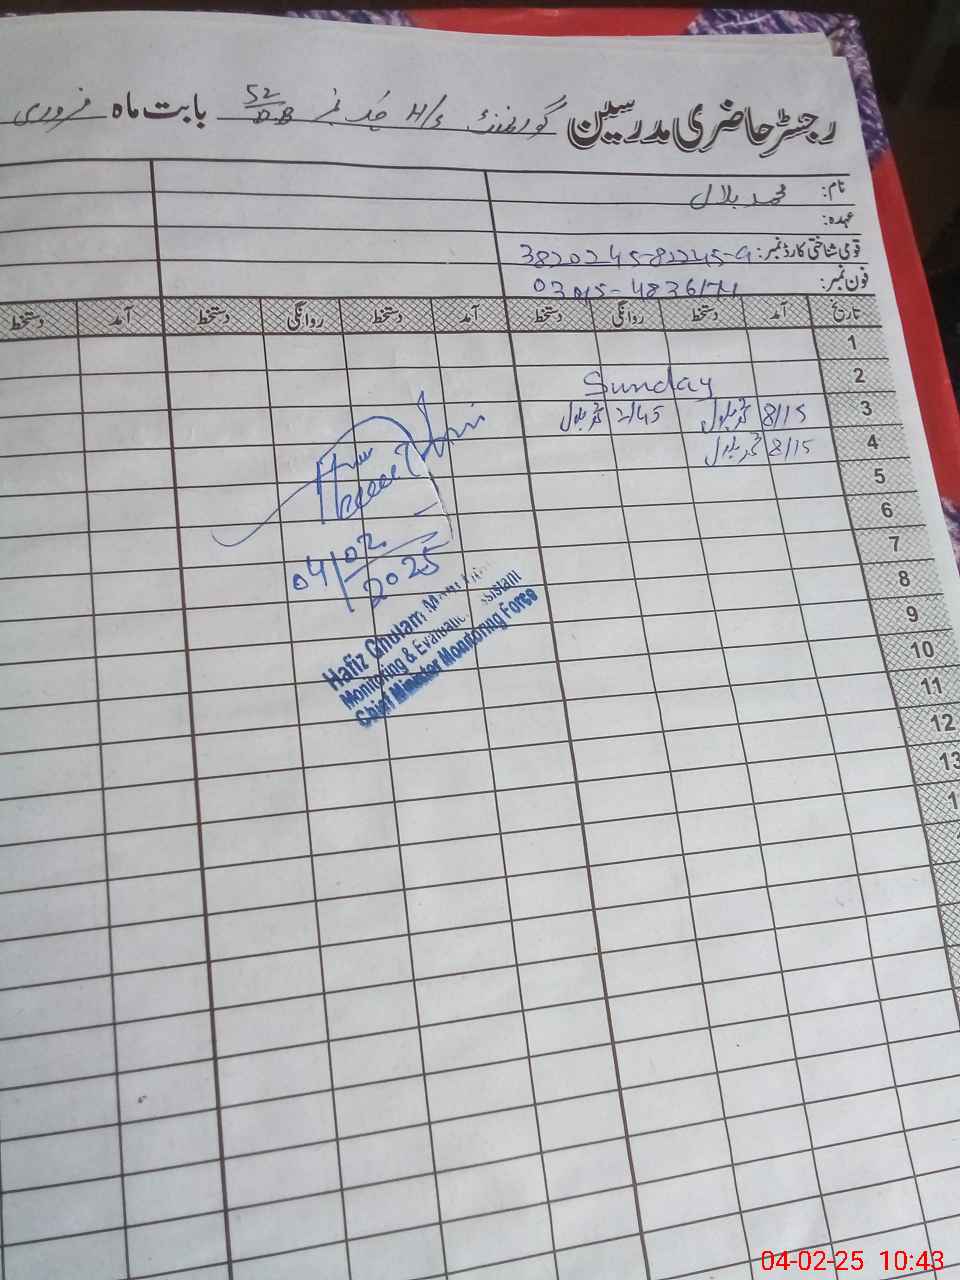 رجسٹر حاضری مدرسین گورنمنٹ H/S چک نمبر 52/DB بابت ماہ فروری
نام: محمد بلال
عہدہ:
قومی شناختی کارڈ نمبر: 3820245-82245-9
فون نمبر:
تاریخ آمد دستخط روانگی دستخط آمد دستخط روانگی دستخط آمد دستخط
1
2 Sunday
3 8/15 محمد بلال 2/45 محمد بلال
4 8/15 محمد بلال
5
6
7
8
9
10
11
12
13
04/02/2025
Hafiz Ghulam
Monitoring & Evaluation Assistant
Chief Minister Monitoring Force
04-02-25 10:43